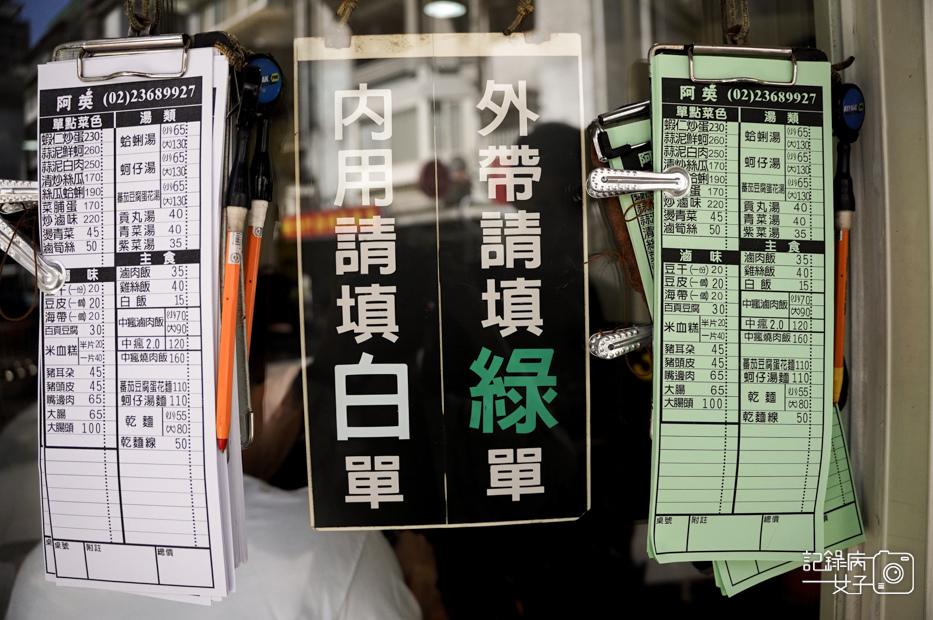 阿英 (02)23689927
單點菜色
蝦仁炒蛋 230
蒜泥鮮蚵 260
蒜泥白肉 250
清炒絲瓜 170
絲瓜蛤蜊 190
菜脯蛋 170
炒滷味 220
燙青菜 45
滷筍絲 50
湯類
蛤蜊湯 (小)65 (大)130
蚵仔湯 (小)65 (大)130
蕃茄豆腐蛋花湯 (小)65 (大)130
貢丸湯 40
青菜湯 40
紫菜湯 35
味
豆干(一份) 20
豆皮(一個) 20
海帶(一個) 20
百頁豆腐 30
米血糕 半片20 一片40
豬耳朵 45
豬頭皮 45
嘴邊肉 65
大腸 65
大腸頭 100
主食
滷肉飯 35
雞絲飯 40
白飯 15
中瘋滷肉飯 (小)70 (大)90
中瘋2.0 120
中瘋燒肉飯 160
蕃茄豆腐蛋花麵 110
蚵仔湯麵 110
乾麵 (小)55 (大)80
乾麵線 50
桌號
桌號
附註
總價
外帶請填綠單
內用請填白單
阿英 (02)23689927
單點菜色
蝦仁炒蛋 230
蒜泥鮮蚵 260
蒜泥白肉 250
清炒絲瓜 170
蛤蜊 190
170
炒滷味 220
燙青菜 45
滷筍絲 50
湯類
蛤蜊湯 (小)65 (大)130
蚵仔湯 (小)65 (大)130
蕃茄豆腐蛋花湯 (小)65 (大)130
貢丸湯 40
青菜湯 40
紫菜湯 35
滷味
豆干(一份) 20
豆皮(一個) 20
海帶(一個) 20
百頁豆腐 30
米血糕 半片20 一片40
豬耳朵 45
豬頭皮 45
嘴邊肉 65
大腸 65
大腸頭 100
主食
滷肉飯 35
雞絲飯 40
白飯 15
中瘋滷肉飯 (小)70 (大)90
中瘋2.0 120
中瘋燒肉飯 160
蕃茄豆腐蛋花麵 110
蚵仔湯麵 110
乾麵 (小)55 (大)80
乾麵線 50
桌號
附註
總價
記錄病女子